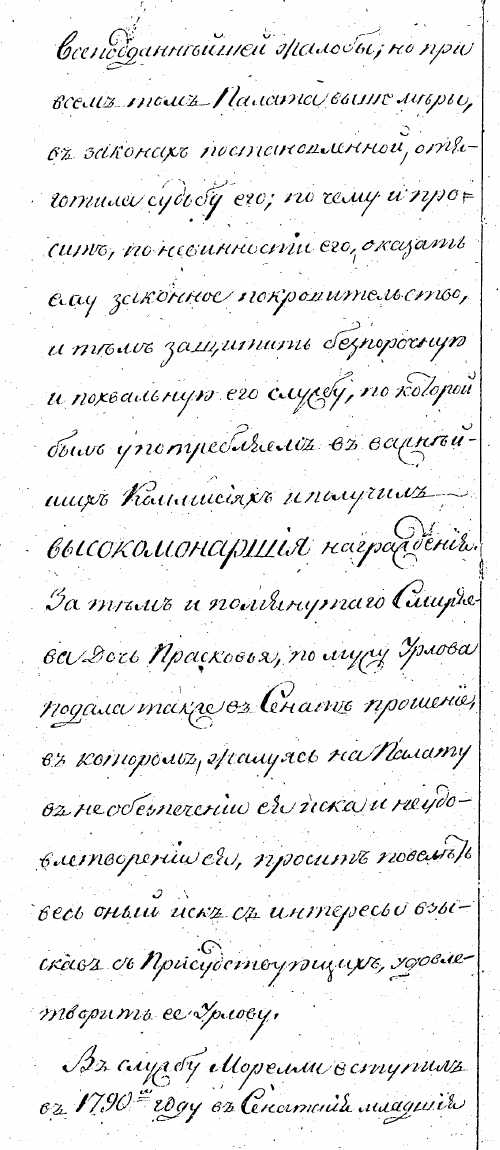 всеподданнѣйшей жалобы; но при
всемъ томъ Палата выше мѣры,
въ законахъ постановленной, отя-
готила судьбу его; по чему и про-
ситъ, по невинности его, оказать
ему законное покровительство,
и тѣмъ защитить безпорочную
и похвальную его службу, по которой
былъ употребляемъ въ важнѣй-
шихъ Коммисіяхъ и получилъ
высокомонаршія награжденія.
За тѣмъ и помянутаго Смиряе-
ва Дочь Прасковья, по мужу Урлова
подала также въ Сенатъ прошеніе,
въ которомъ, жалуясь на Палату
въ необезпеченіи ея иска и неудо-
влетвореніи ея, проситъ повелѣть
весь оный искъ съ интересы взы-
скавъ съ Присудствующихъ, удовле-
творить ее Урлову.
Въ службу Морелли вступилъ
въ 1790м году въ Сенатскія младшія